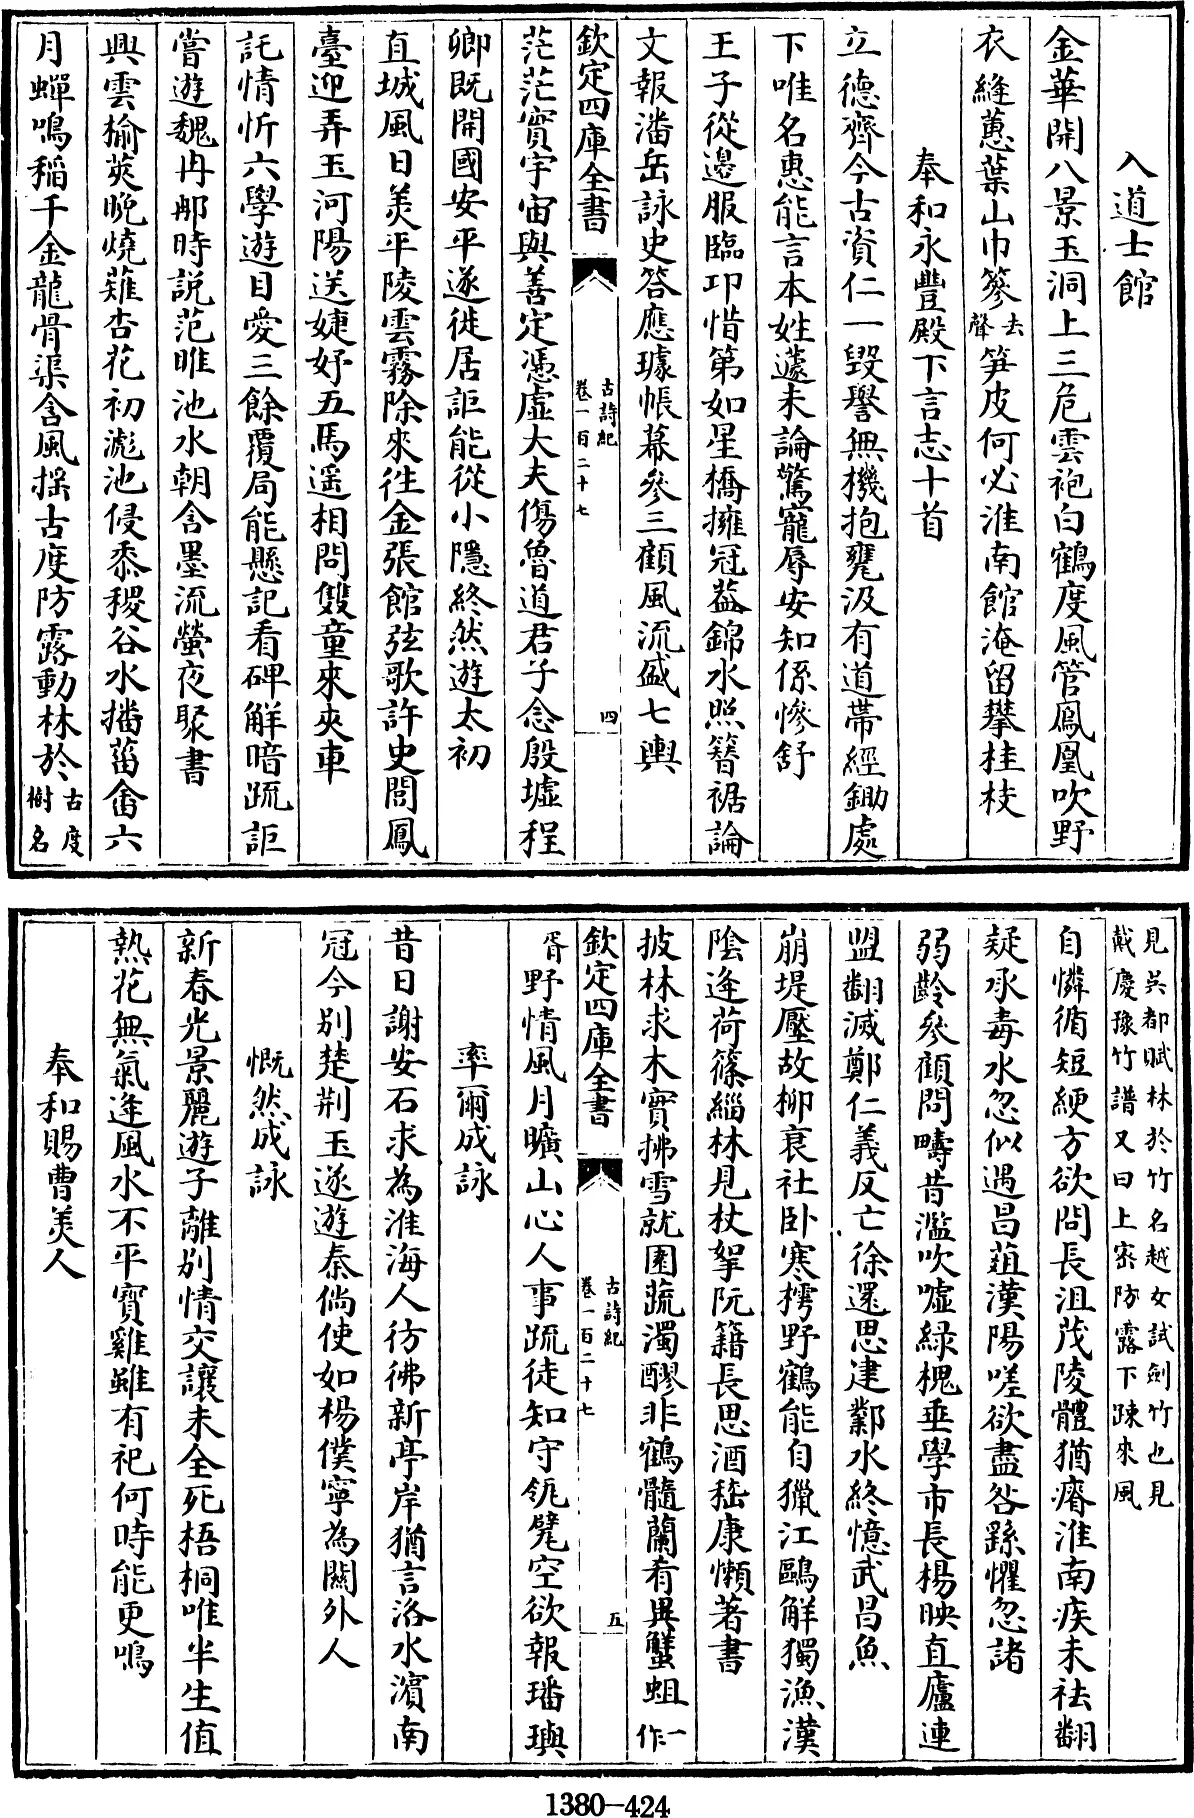 入道士館
金華開八景玉洞上三危雲袍白鶴度風管鳳凰吹野
衣縫蕙葉山巾篸去聲笋皮何必淮南館淹留攀桂枝
奉和永豐殿下言志十首
立德齊今古資仁一毀譽無機抱甕汲有道帶經鋤處
下唯名惠能言本姓蘧未論驚寵辱安知係慘舒
王子從邊服臨卭惜第如星橋擁冠葢錦水照簪裾論
文報潘岳詠史答應璩帳幕參三顧風流盛七輿
欽定四庫全書
古詩紀
卷一百二十七
四
茫茫實宇宙與善定憑虛大夫傷魯道君子念殷墟程
卿既開國安平遂徙居詎能從小隱終然遊太初
直城風日美平陵雲霧除來徃金張館弦歌許史閭鳳
臺迎弄玉河陽送婕妤五馬遥相問雙童來夾車
託情忻六學遊目愛三餘覆局能懸記看碑解暗疏詎
嘗遊魏冉那時説范睢池水朝含墨流螢夜聚書
興雲榆莢晚燒薙杏花初滮池侵黍稷谷水播菑畬六
月蟬鳴稻千金龍骨渠含風揺古度防露動林於古度樹名
見吳都賦林於竹名越女試劍竹也見
戴慶豫竹譜又曰上宻防露下踈來風
自憐循短綆方欲問長沮茂陵體猶瘠淮南疾未袪翻
疑承毒水忽似遇昌菹漢陽嗟欲盡咎繇懼忽諸
弱齡參顧問疇昔濫吹噓緑槐垂學市長楊映直廬連
盟翻滅鄭仁義反亡徐還思建鄴水終憶武昌魚
崩堤壓故柳衰社卧寒樗野鶴能自獵江鷗解獨漁漢
陰逢荷篠緇林見杖挐阮籍長思酒嵇康懶著書
披林求木實拂雪就園蔬濁醪非鶴髓蘭肴異蟹蛆一作
欽定四庫全書
古詩紀
卷一百二十七
五
胥野情風月曠山心人事疏徒知守瓴甓空欲報璠璵
率爾成詠
昔日謝安石求為淮海人彷彿新亭岸猶言洛水濵南
冠今别楚荆玉遂遊秦倘使如楊僕寧為關外人
慨然成詠
新春光景麗遊子離别情交讓未全死梧桐唯半生值
熱花無氣逢風水不平寳雞雖有祀何時能更鳴
奉和賜曹美人
1380—424